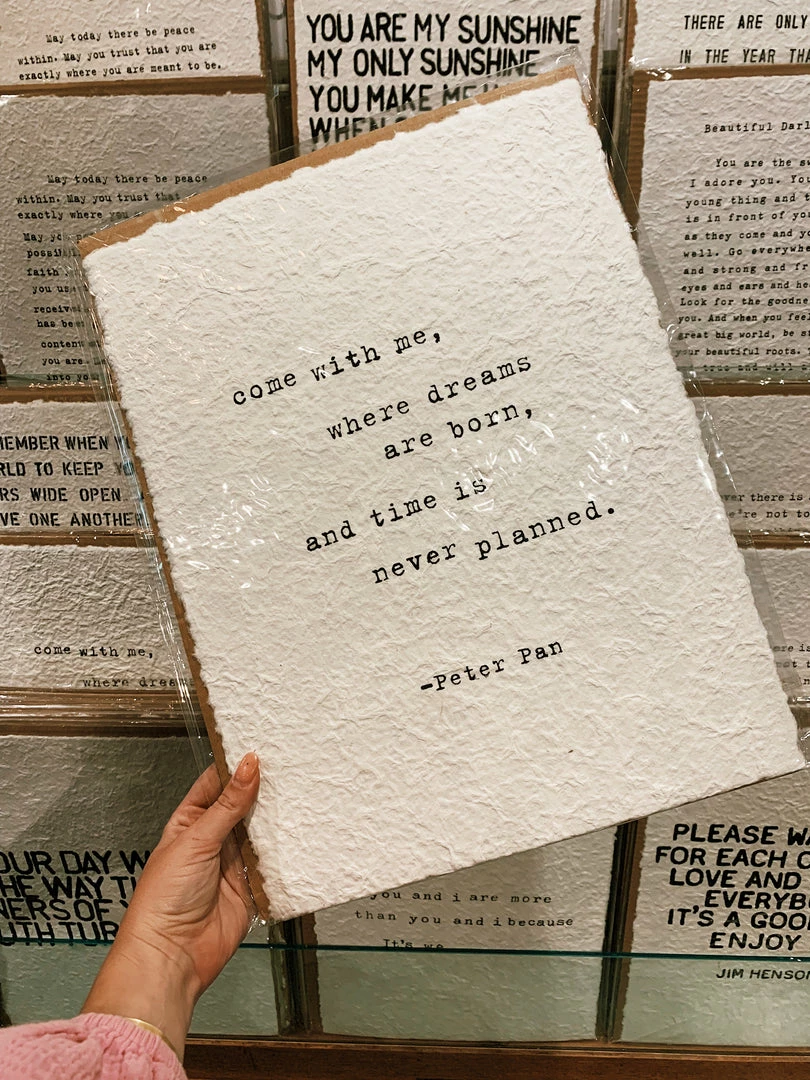 May today there be peace
within. May you trust that you are
exactly where you are meant to be.
YOU ARE MY SUNSHINE
MY ONLY SUNSHINE
YOU MAKE ME
WHEN
THERE ARE ONLY
IN THE YEAR THA
May today there be peace
within. May you trust that
exactly where you
May
faith
you
has
content
you are
into yo
Beautiful Darl
You are the sw
I adore you. You
young thing and t
is in front of you
as they come and yo
well. Go everywhe
and strong and fr
eyes and ears and hea
Look for the goodne
you. And when you feel
great big world, be st
your beautiful roots.
EMBER WHEN
RLD TO KEEP
RS WIDE OPEN
VE ONE ANOTHER
come with me,
where dreams
are born,
and time is
never planned.
-Peter Pan
ver there is
e're not to
come with me,
where dreams
OUR DAY W
HE WAY T
NERS OF
UTH TUR
you and i are more
than you and i because
It's we
PLEASE WA
FOR EACH O
LOVE AND
EVERYB
IT'S A GOO
ENJOY
JIM HENSON